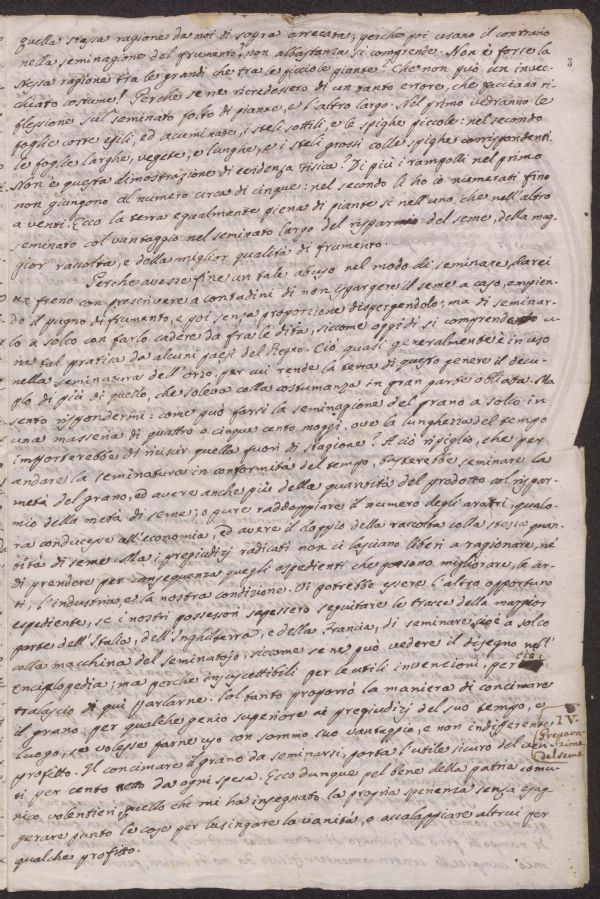 3
quella stessa ragione da noi di sopra arrecata; perche poi usano il contrario
nella seminagione del frumento, non abbastanza si comprende. Non è forse la
stessa ragione tra le grandi che tra le picciole piante? Che non può un invec-
chiato costume! Perche se ne ricredessero di un tanto errore, che facciano ri-
flessione sul seminato folto di piante, e l'altro largo. Nel primo vedranno le
foglie corte esili, ed accuminate, i steli sottili, e le spighe piccole: nel secondo
le foglie larghe, vegete, e lunghe, e i steli grossi colle spighe corrispondenti.
Non è questa dimostrazione di evidenza Fisica? Di più i rampolli nel primo
non giungono al numero circa di cinque: nel secondo li ho io numerati fino
a venti. Ecco la terra egualmente piena di piante sì nell'uno, che nell'altro
seminato col vantaggio nel seminato largo del risparmio del seme, della mag-
gior raccolta, e della miglior qualità di frumento.
Perche avesse fine un tale abuso nel modo di seminare, darei
un freno con prescrivere a contadini di non ispargere il seme a caso, empien-
do il pugno di frumento, e poi senza proporzione dispergendolo; ma di seminar-
lo a solco con farlo cadere da fra le dita, siccome oggidì si comprende u-
na tal pratica da alcuni paesi del Regno. Ciò quasi generalmente è in uso
nella seminatura dell'orzo, per cui rende la terra di questo genere il decu-
plo di più di quello, che soleva colla costumanza in gran parte obliata. Ma
sento rispondermi: come può farsi la seminagione del grano a solco in
una masseria di quattro o cinque cento moggi, ove la lunghezza del tempo
importerebbe di riuscir quella fuori di stagione? A ciò ripiglio, che per
andare la seminatura in conformità del tempo, basterebbe seminare la
metà del grano, ed avere anche più della quantità del prodotto col rispar-
mio della metà di seme; o pure raddoppiare il numero degli aratri, qualo-
ra conducesse all'economia, ed avere il doppio della raccolta colla stessa quan-
tità di seme. Ma i pregiudizj radicati non ci lasciano liberi a ragionare, nè
di prendere per conseguenza quegli espedienti che possono migliorare, le ar-
ti, l'industria, e la nostra condizione. Vi potrebbe essere l'altro opportuno
espediente, se i nostri possessori sapessero seguitare le tracce della maggior
parte dell'Italia, dell'Inghilterra, e della Francia, di seminare cioè a solco
colla macchina del seminatojo, siccome se ne può vedere il disegno nell'
Enciclopedia; ma perche insuscettibili per le utili invenzioni, per ciò
tralascio di qui parlarne. Sol tanto proporrò la maniera di concimare
il grano per qualche genio superiore ai pregiudizj del suo tempo, e
luogo, se volesse farne uso con sommo suo vantaggio, e non indifferente
profitto. Il concimare il grano da seminarsi, porta l'utile sicuro del ven-
ti per cento netto da ogni spesa. Ecco dunque pel bene della patria comu-
nico volentieri quello che mi ha insegnato la propria sperienza senza esag-
gerare punto le cose per lusingare la vanità, o accalappiare altrui per
qualche profitto.
IV.
Prepara-
zione
del seme